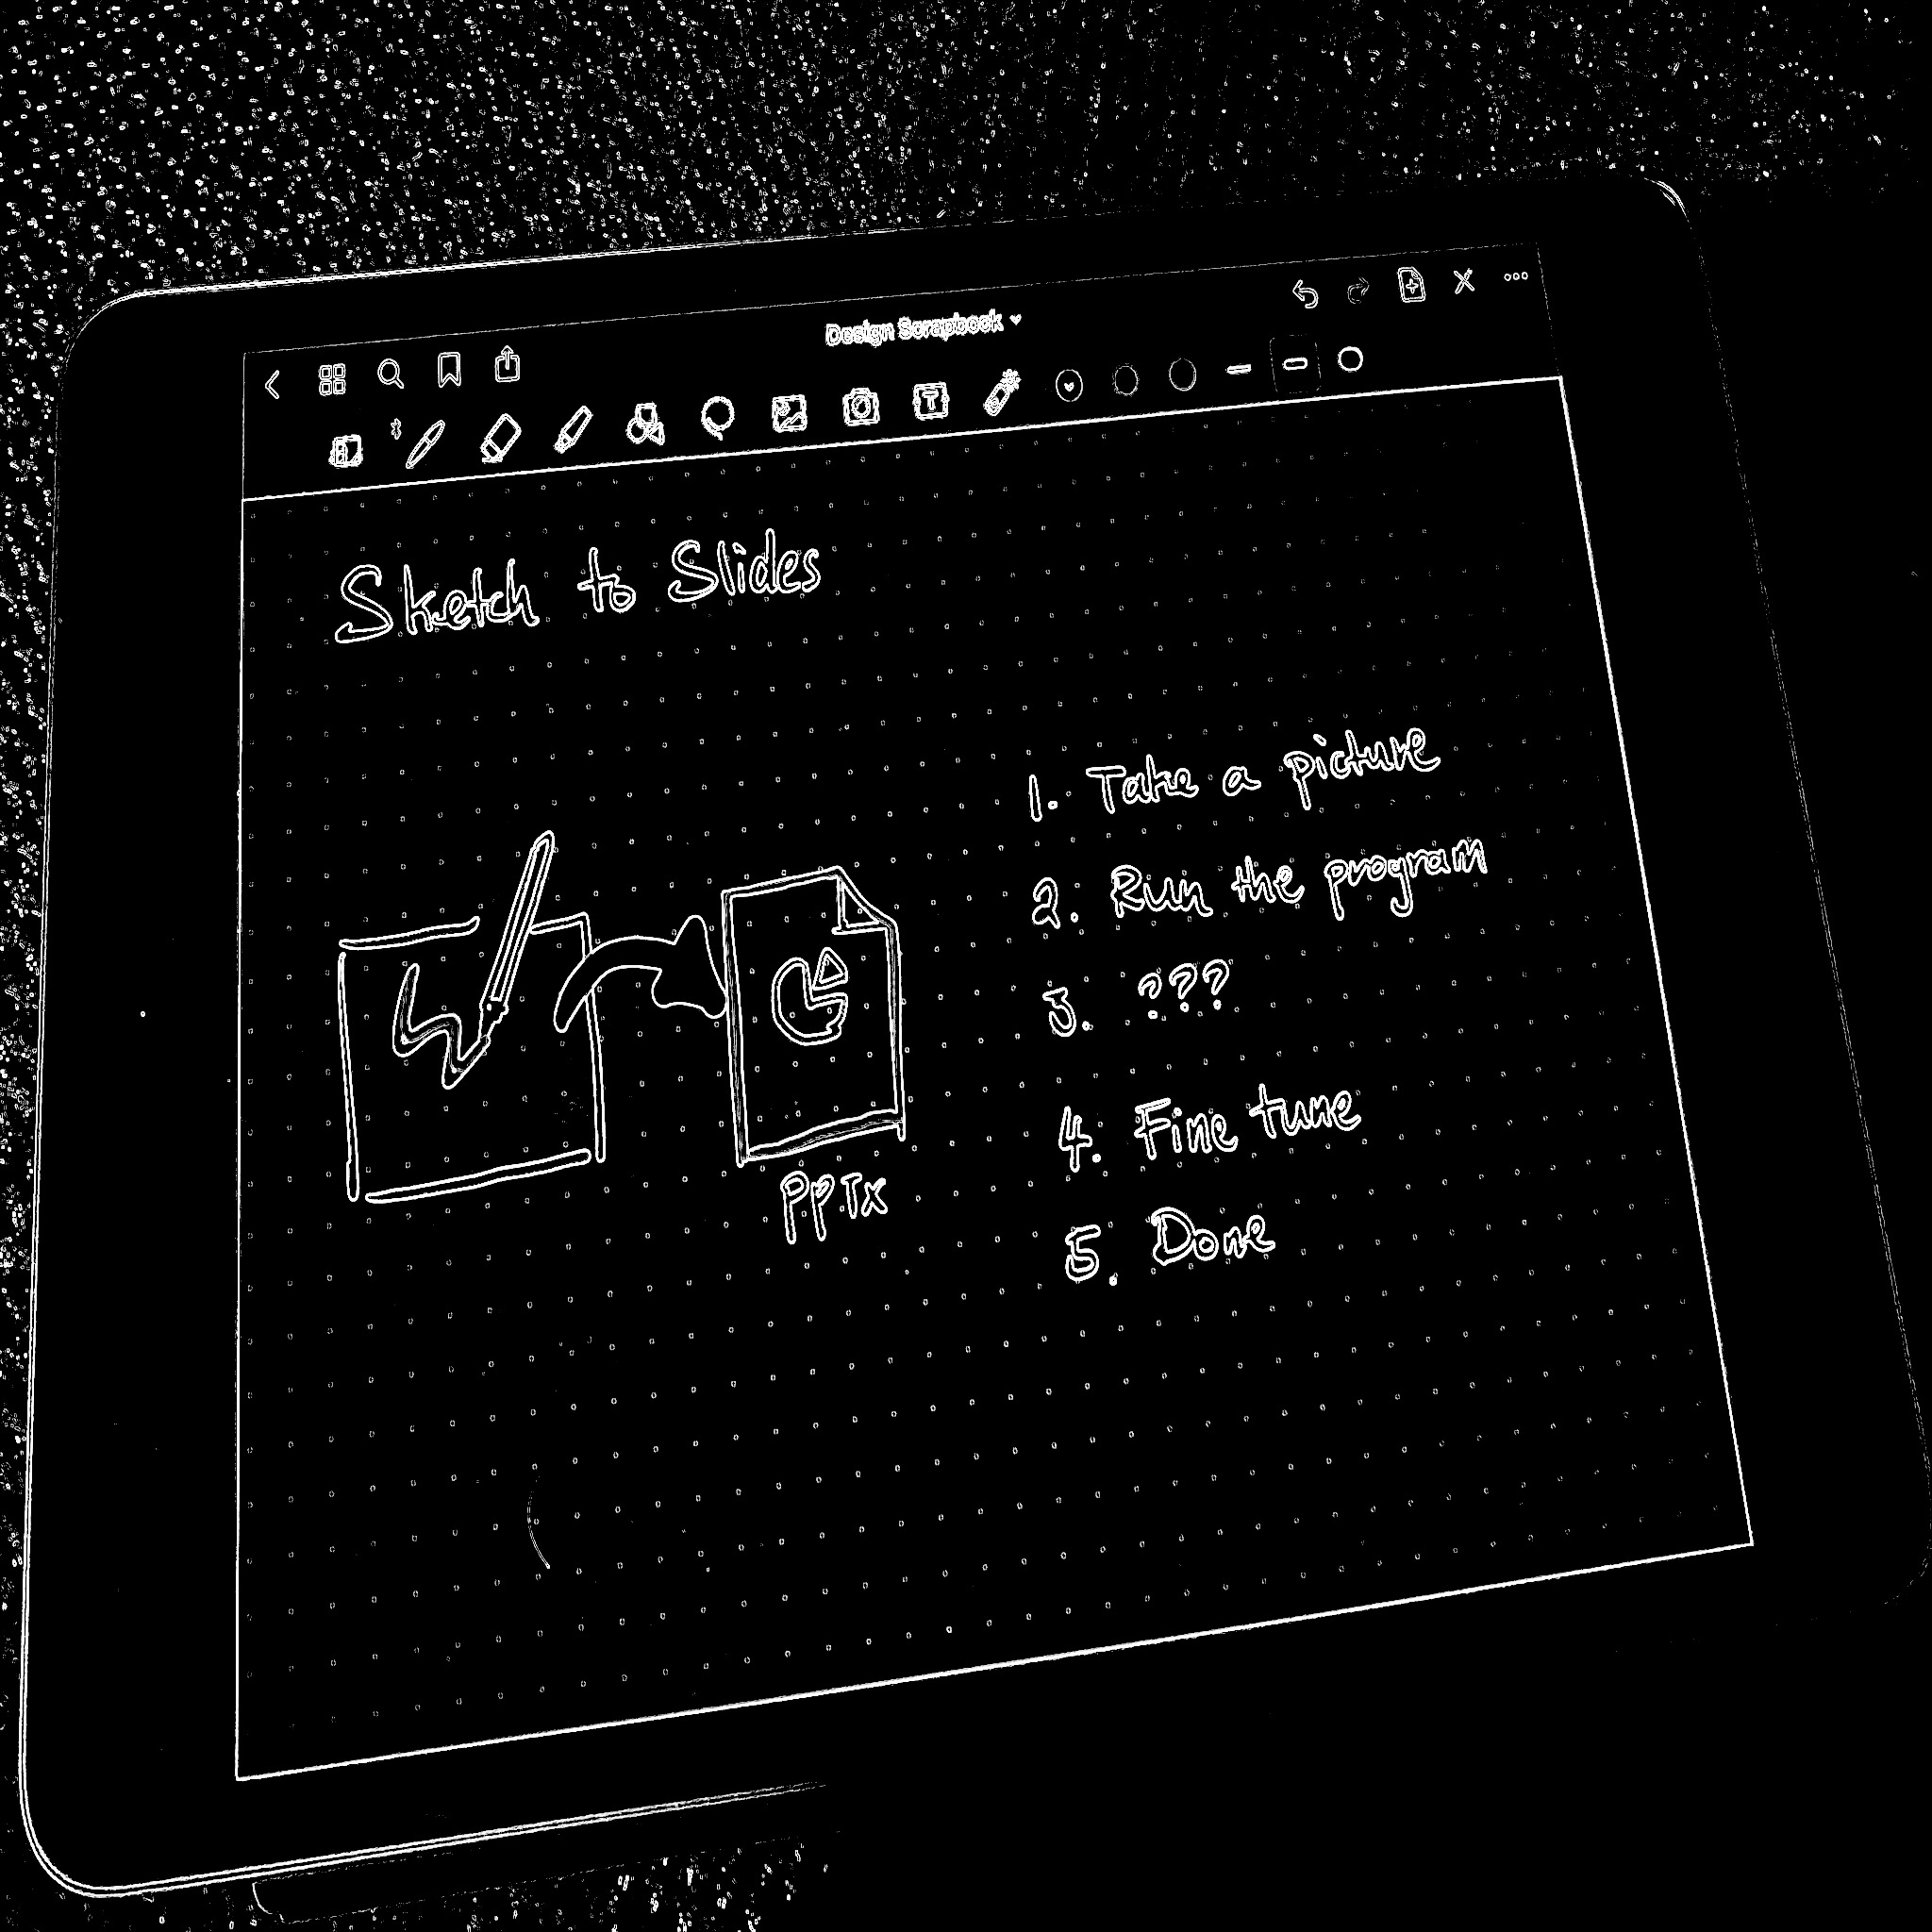 Design Scrapbook
Sketch to Slides
1. Take a picture
2. Run the program
3. ???
4. Fine tune
5. Done
PPTx